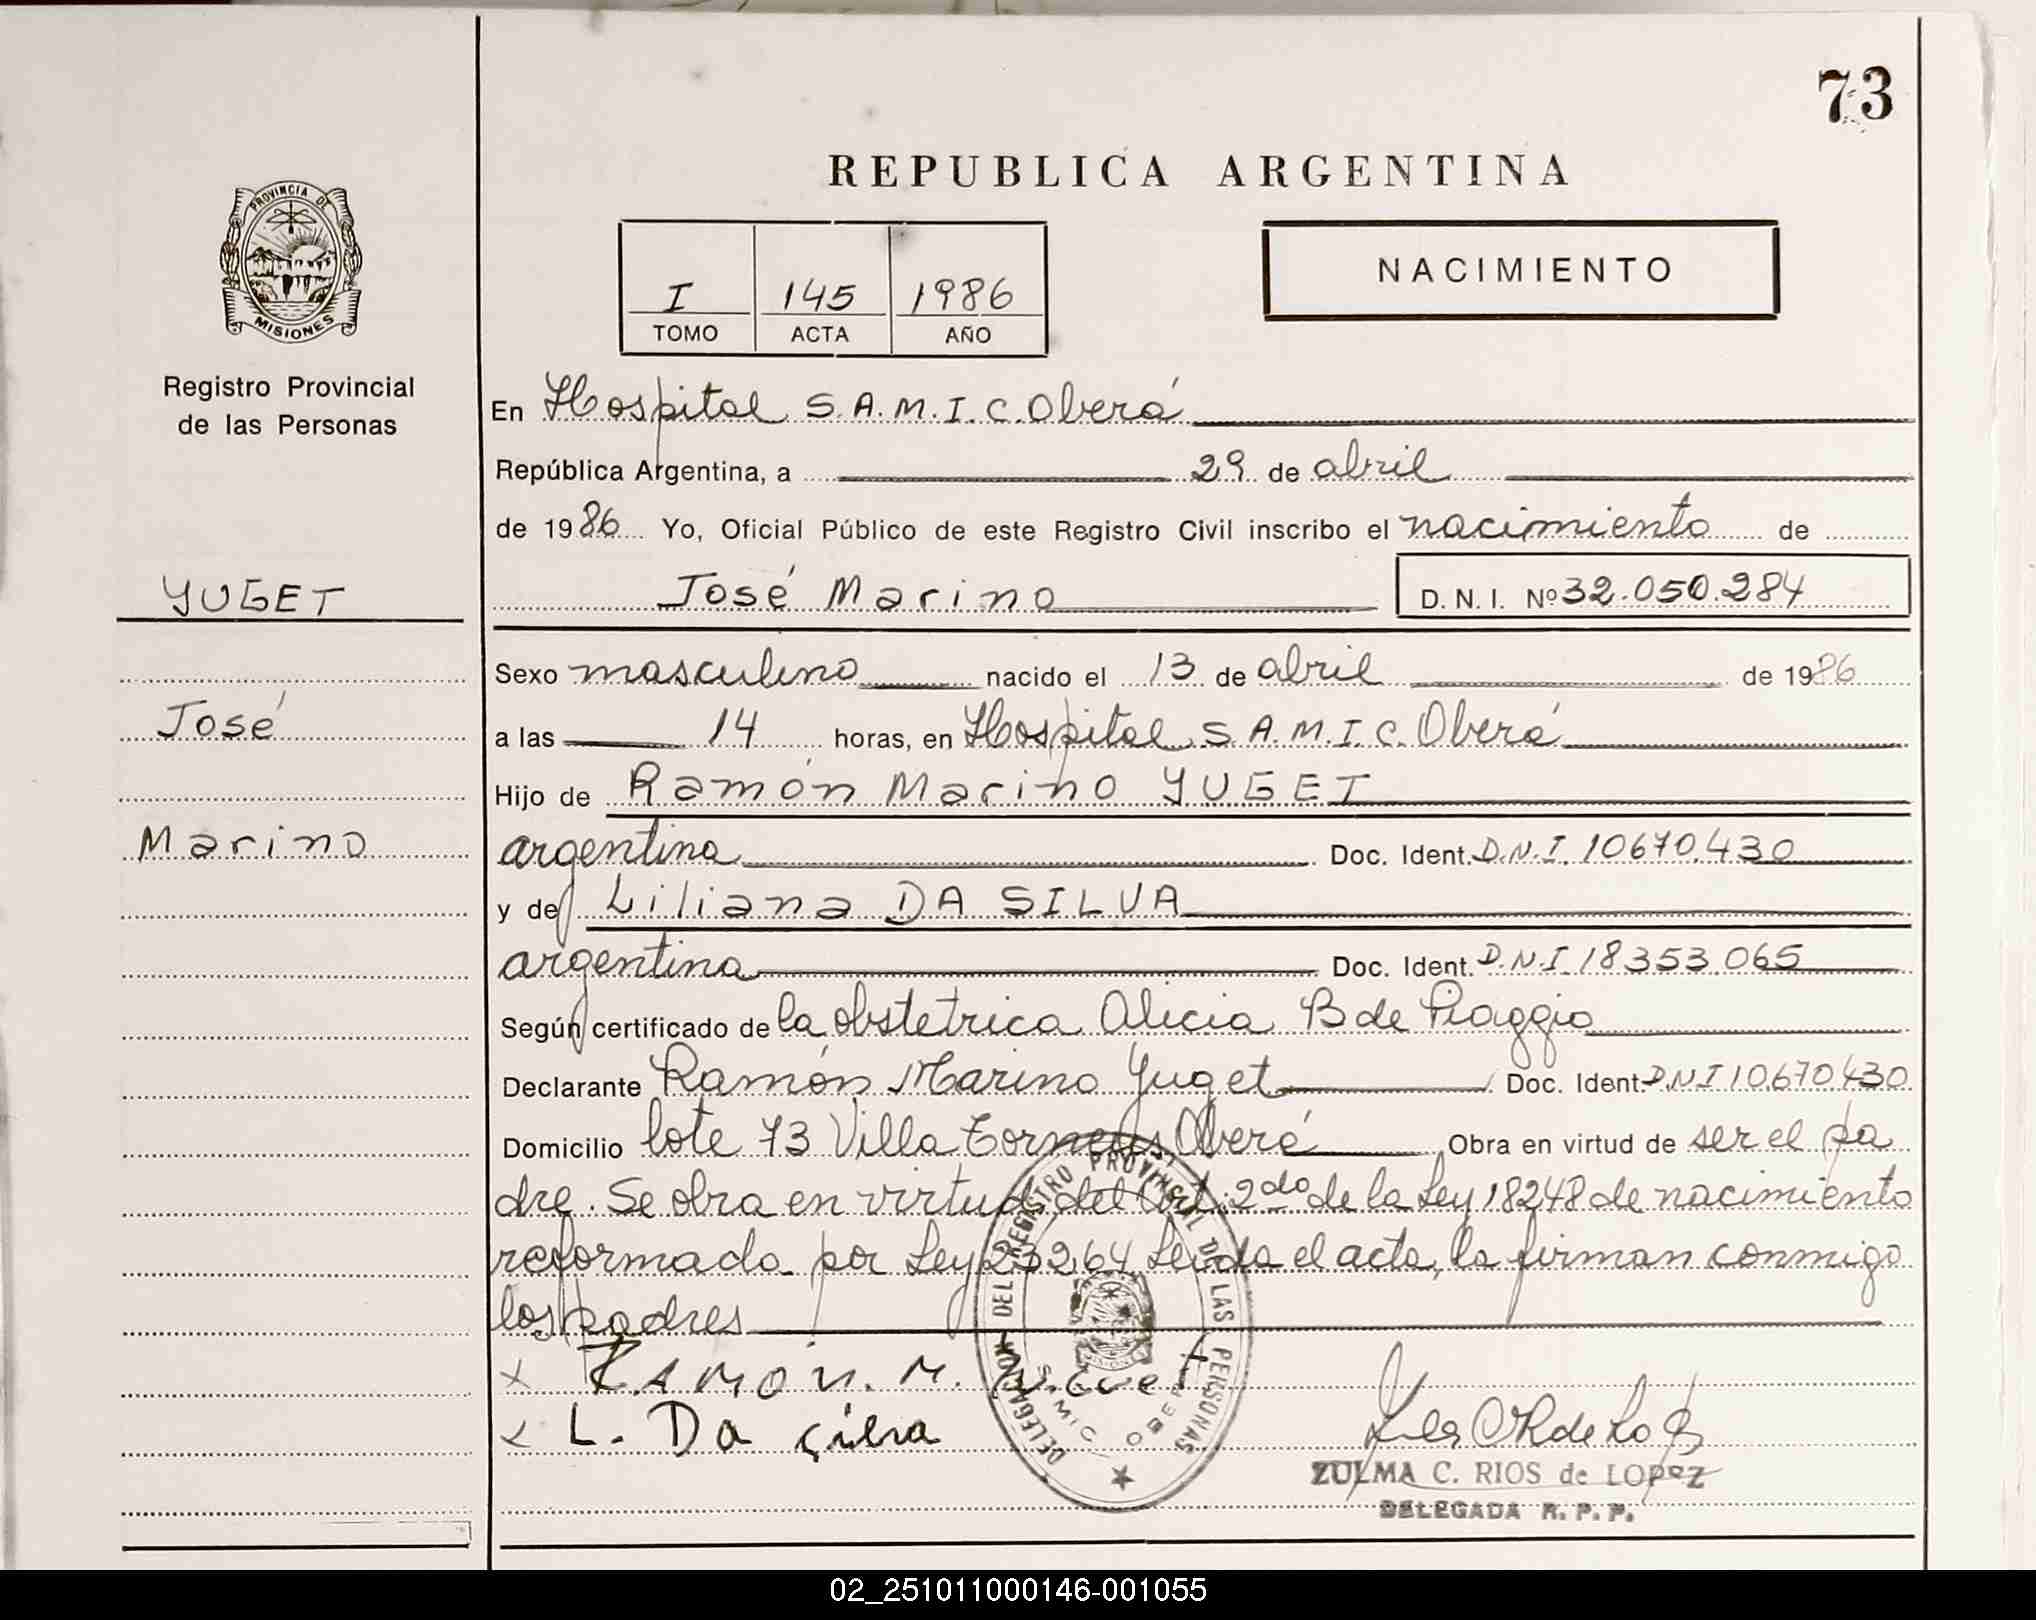 73
REPUBLICA ARGENTINA
PROVINCIA DE
MISIONES
Registro Provincial
de las Personas
I 145 1986
TOMO ACTA AÑO
NACIMIENTO
En Hospital S.A.M.I.C. Oberá
República Argentina, a 29 de abril
de 1986 Yo, Oficial Público de este Registro Civil inscribo el nacimiento de
YUGET
José Marino D.N.I. Nº 32.050.284
Sexo masculino nacido el 13 de abril de 1986
José
a las 14 horas, en Hospital S.A.M.I.C. Oberá
Hijo de Ramón Marino YUGET
Marino
argentina Doc. Ident. D.N.I. 10670.430
y de Liliana DA SILVA
argentina Doc. Ident. D.N.I. 18353.065
Según certificado de la obstetrica Alicia B de Piaggio
Declarante Ramón Marino Yuget Doc. Ident. D.N.I 10.670.430
Domicilio lote 73 Villa Oberá Obra en virtud de ser el pa
dre. Se obra en virtud del Art. 2do de la Ley 18248 de nacimiento
reformada por Ley 23264 Leida el acta, la firman conmigo
los padres
x RAMÓN. M. Yuget
x L. Da Silva
DELEGACION DEL REGISTRO PROVINCIAL DE LAS PERSONAS
SAMIC OBERA
ZULMA C. RIOS de LOPEZ
DELEGADA R. P. P.
02_251011000146-001055